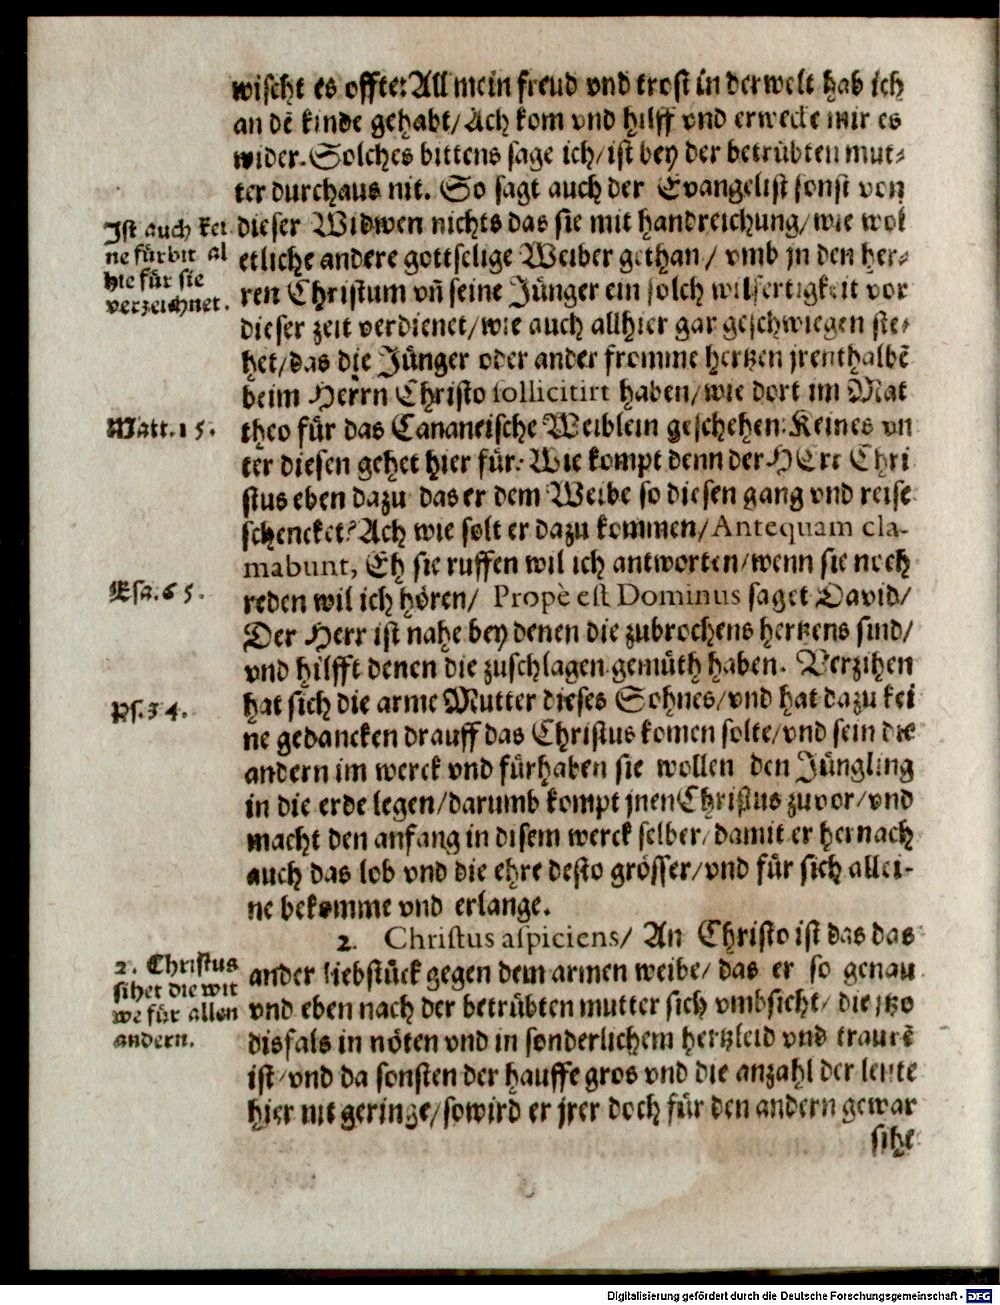 wischt es offte: All mein freud vnd trost in der welt hab ich
an dē kinde gehabt/ Ach kom vnd hilff vnd erwecke mir es
wider. Solches bittens sage ich/ ist bey der betrübten mut-
ter durchaus nit. So sagt auch der Evangelist sonst von
dieser Widwen nichts das sie mit handreichung/ wie wol
etliche andere gottselige Weiber gethan/ vmb jn den her-
ren Christum vñ seine Jünger ein solch wilfertigkeit vor
dieser zeit verdienet/ wie auch allhier gar geschwiegen ste-
het/ das die Jünger oder ander fromme hertzen jrenthalbē
beim Herrn Christo sollicitirt haben/ wie dort im Mat
theo für das Cananeische Weiblein geschehen: Keines vn
ter diesen gehet hier für: Wie kompt denn der HErr Chri
stus eben dazu das er dem Weibe so diesen gang vnd reise
schencket? Ach wie solt er dazu kommen/ Antequam cla-
mabunt, Eh sie ruffen wil ich antworten/ wenn sie noch
reden wil ich hören/ Propè est Dominus saget David/
Der Herr ist nahe bey denen die zubrochens hertzens sind/
vnd hilfft denen die zuschlagen gemüth haben. Verzihen
hat sich die arme Mutter dieses Sohnes/ vnd hat dazu kei
ne gedancken drauff das Christus komen solte/ vnd sein die
andern im werck vnd fürhaben sie wollen den Jüngling
in die erde legen/ darumb kompt jnen Christus zuvor/ vnd
macht den anfang in disem werck selber/ damit er hernach
auch das lob vnd die ehre desto grösser/ vnd für sich allei-
ne bekomme vnd erlange.
2. Christus aspiciens/ An Christo ist das das
ander liebstück gegen dem armen weibe/ das er so genau
vnd eben nach der betrübten mutter sich vmbsicht/ die jtzo
disfals in nöten vnd in sonderlichem hertzleid vnd traurē
ist/ vnd da sonsten der hauffe gros vnd die anzahl der leute
hier nit geringe/ so wird er jrer doch für den andern gewar
sihe
Ist auch kei
ne fürbit al
hie für sie
verzeichnet.
Matt. 15.
Esa. 65.
Ps. 34.
2. Christus
sihet die wit
we für allen
andern.
Digitalisierung gefördert durch die Deutsche Forschungsgemeinschaft - DFG